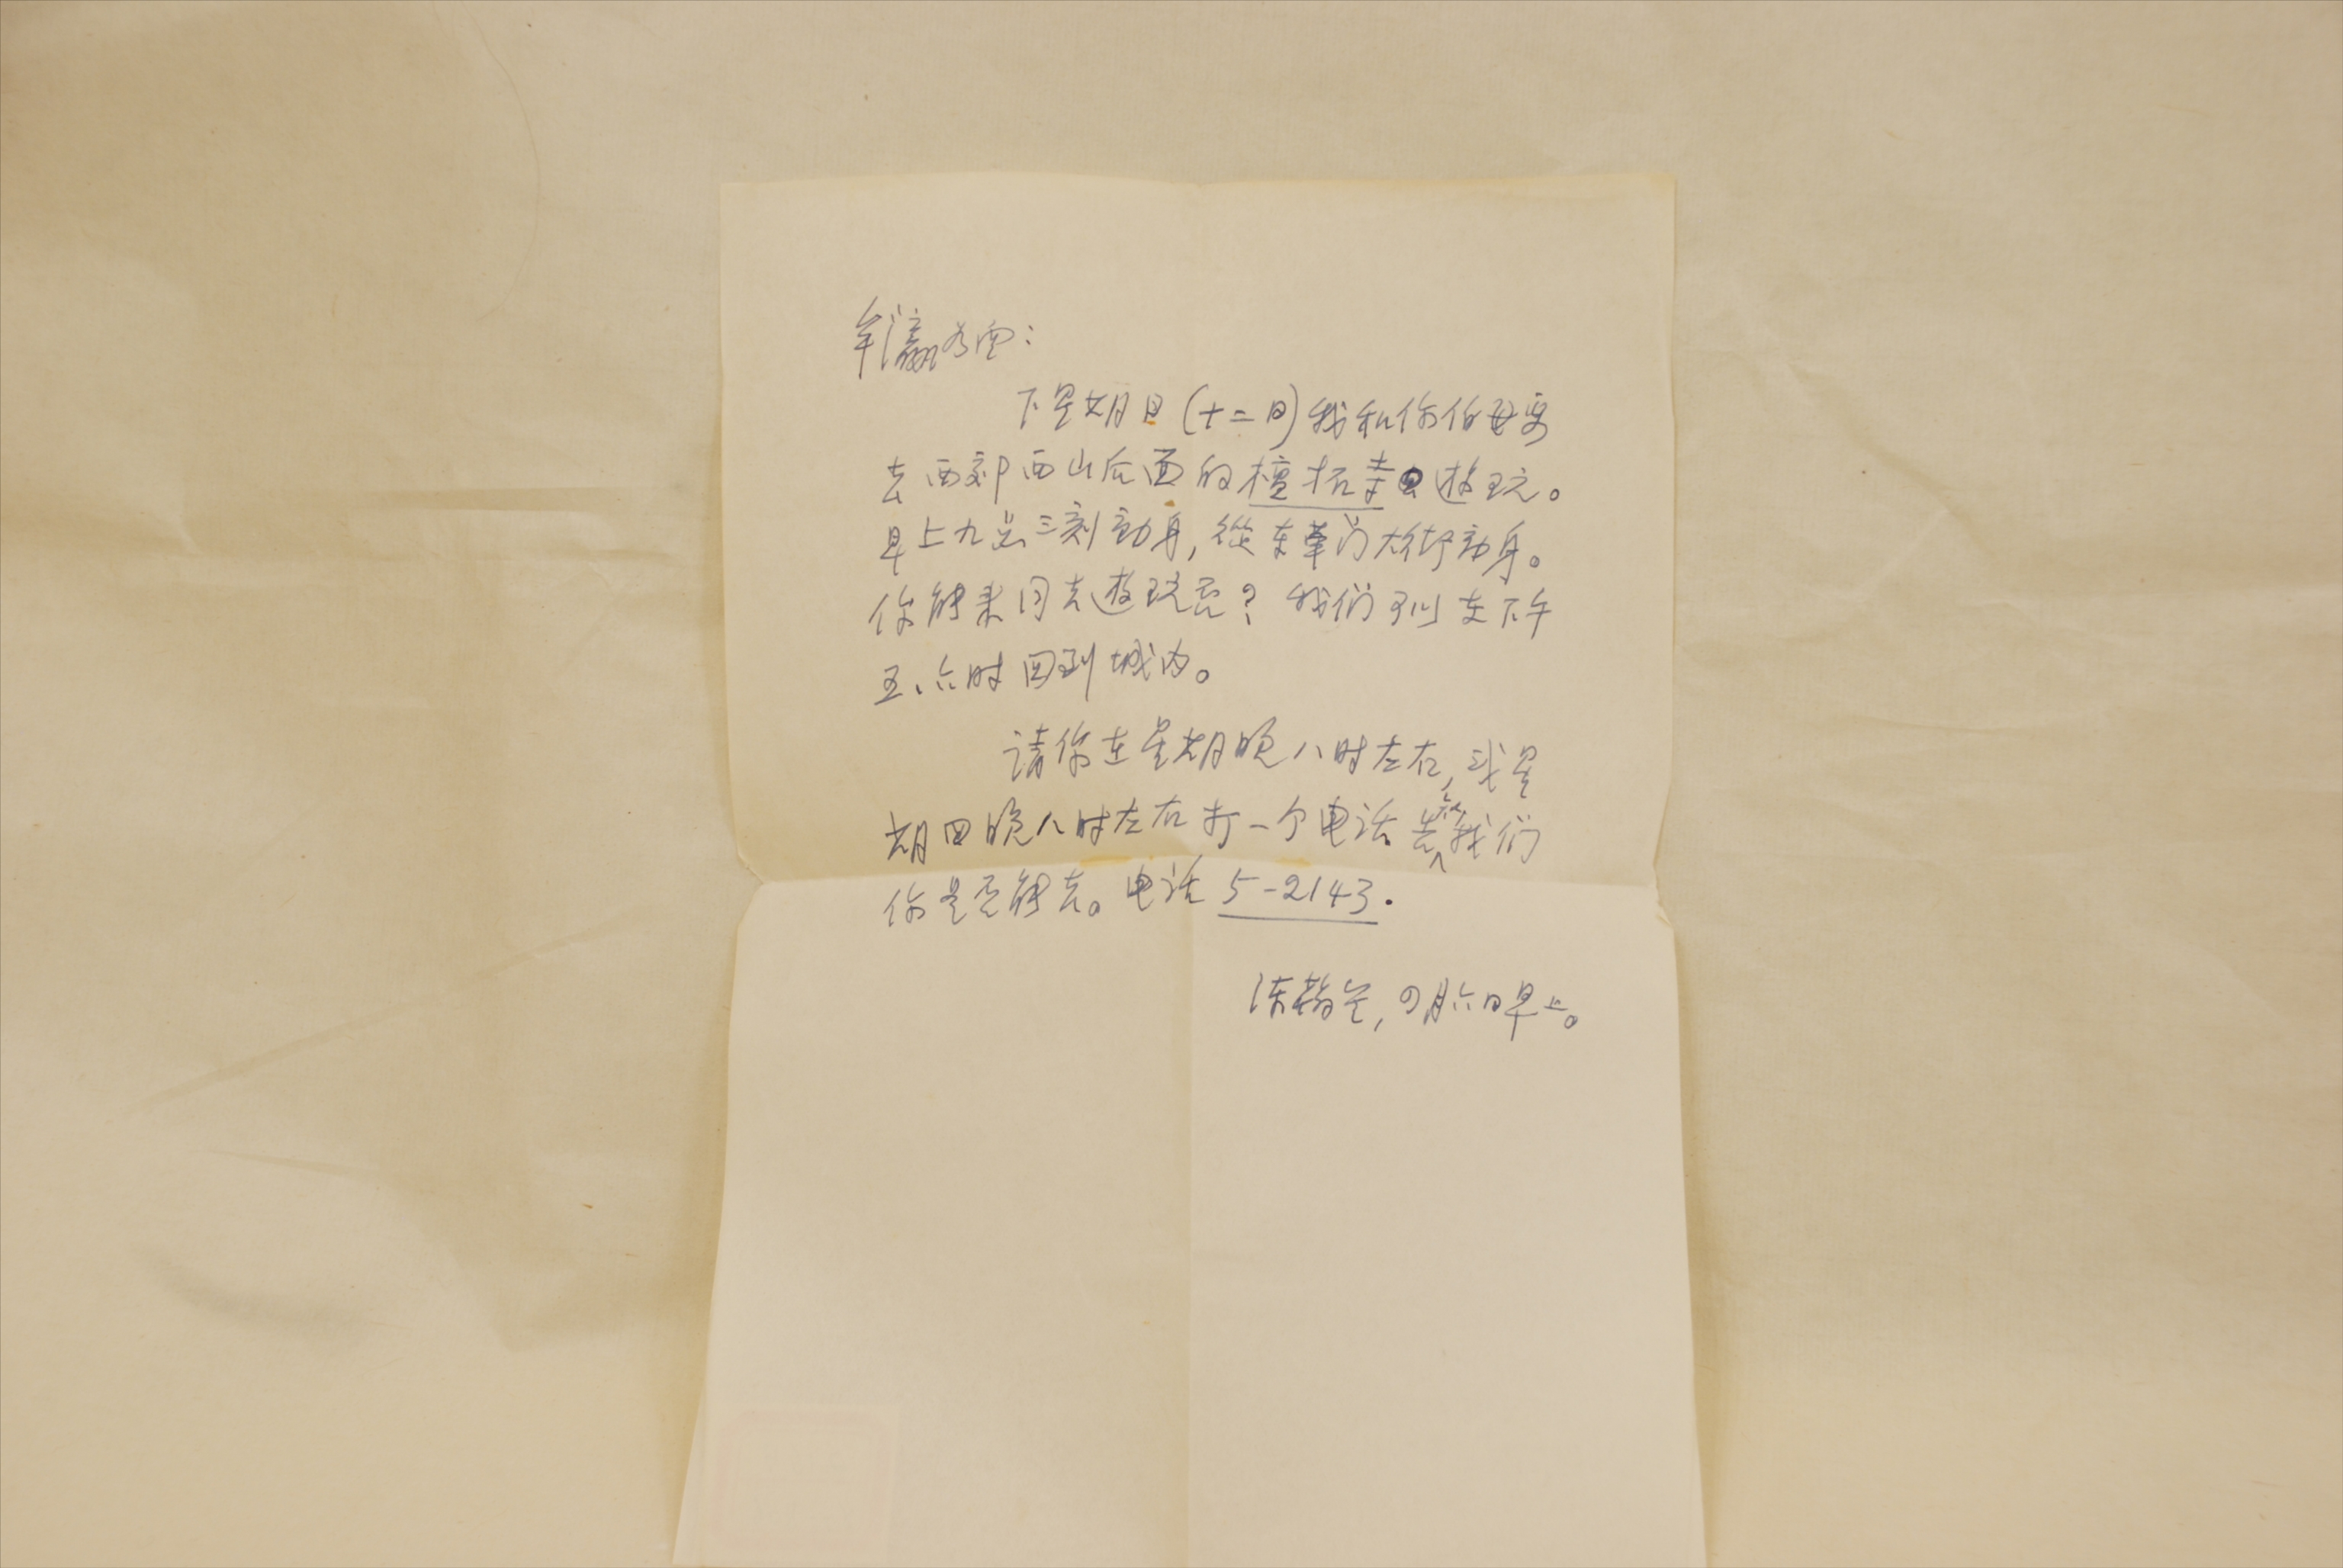 下星期日(十二日)我和你伯母要
去西郊西山后面的檀柘寺游玩。
早上九点三刻动身,從东華门大街动身。
你能来同去遊玩否?我们可以在下午
五、六时回到城内。
请你在星期晚八时左右,或星
期四晚八时左右打一个电话告知我们
你是否能去。电话5-2143.
陈翰笙,四月六日早上。